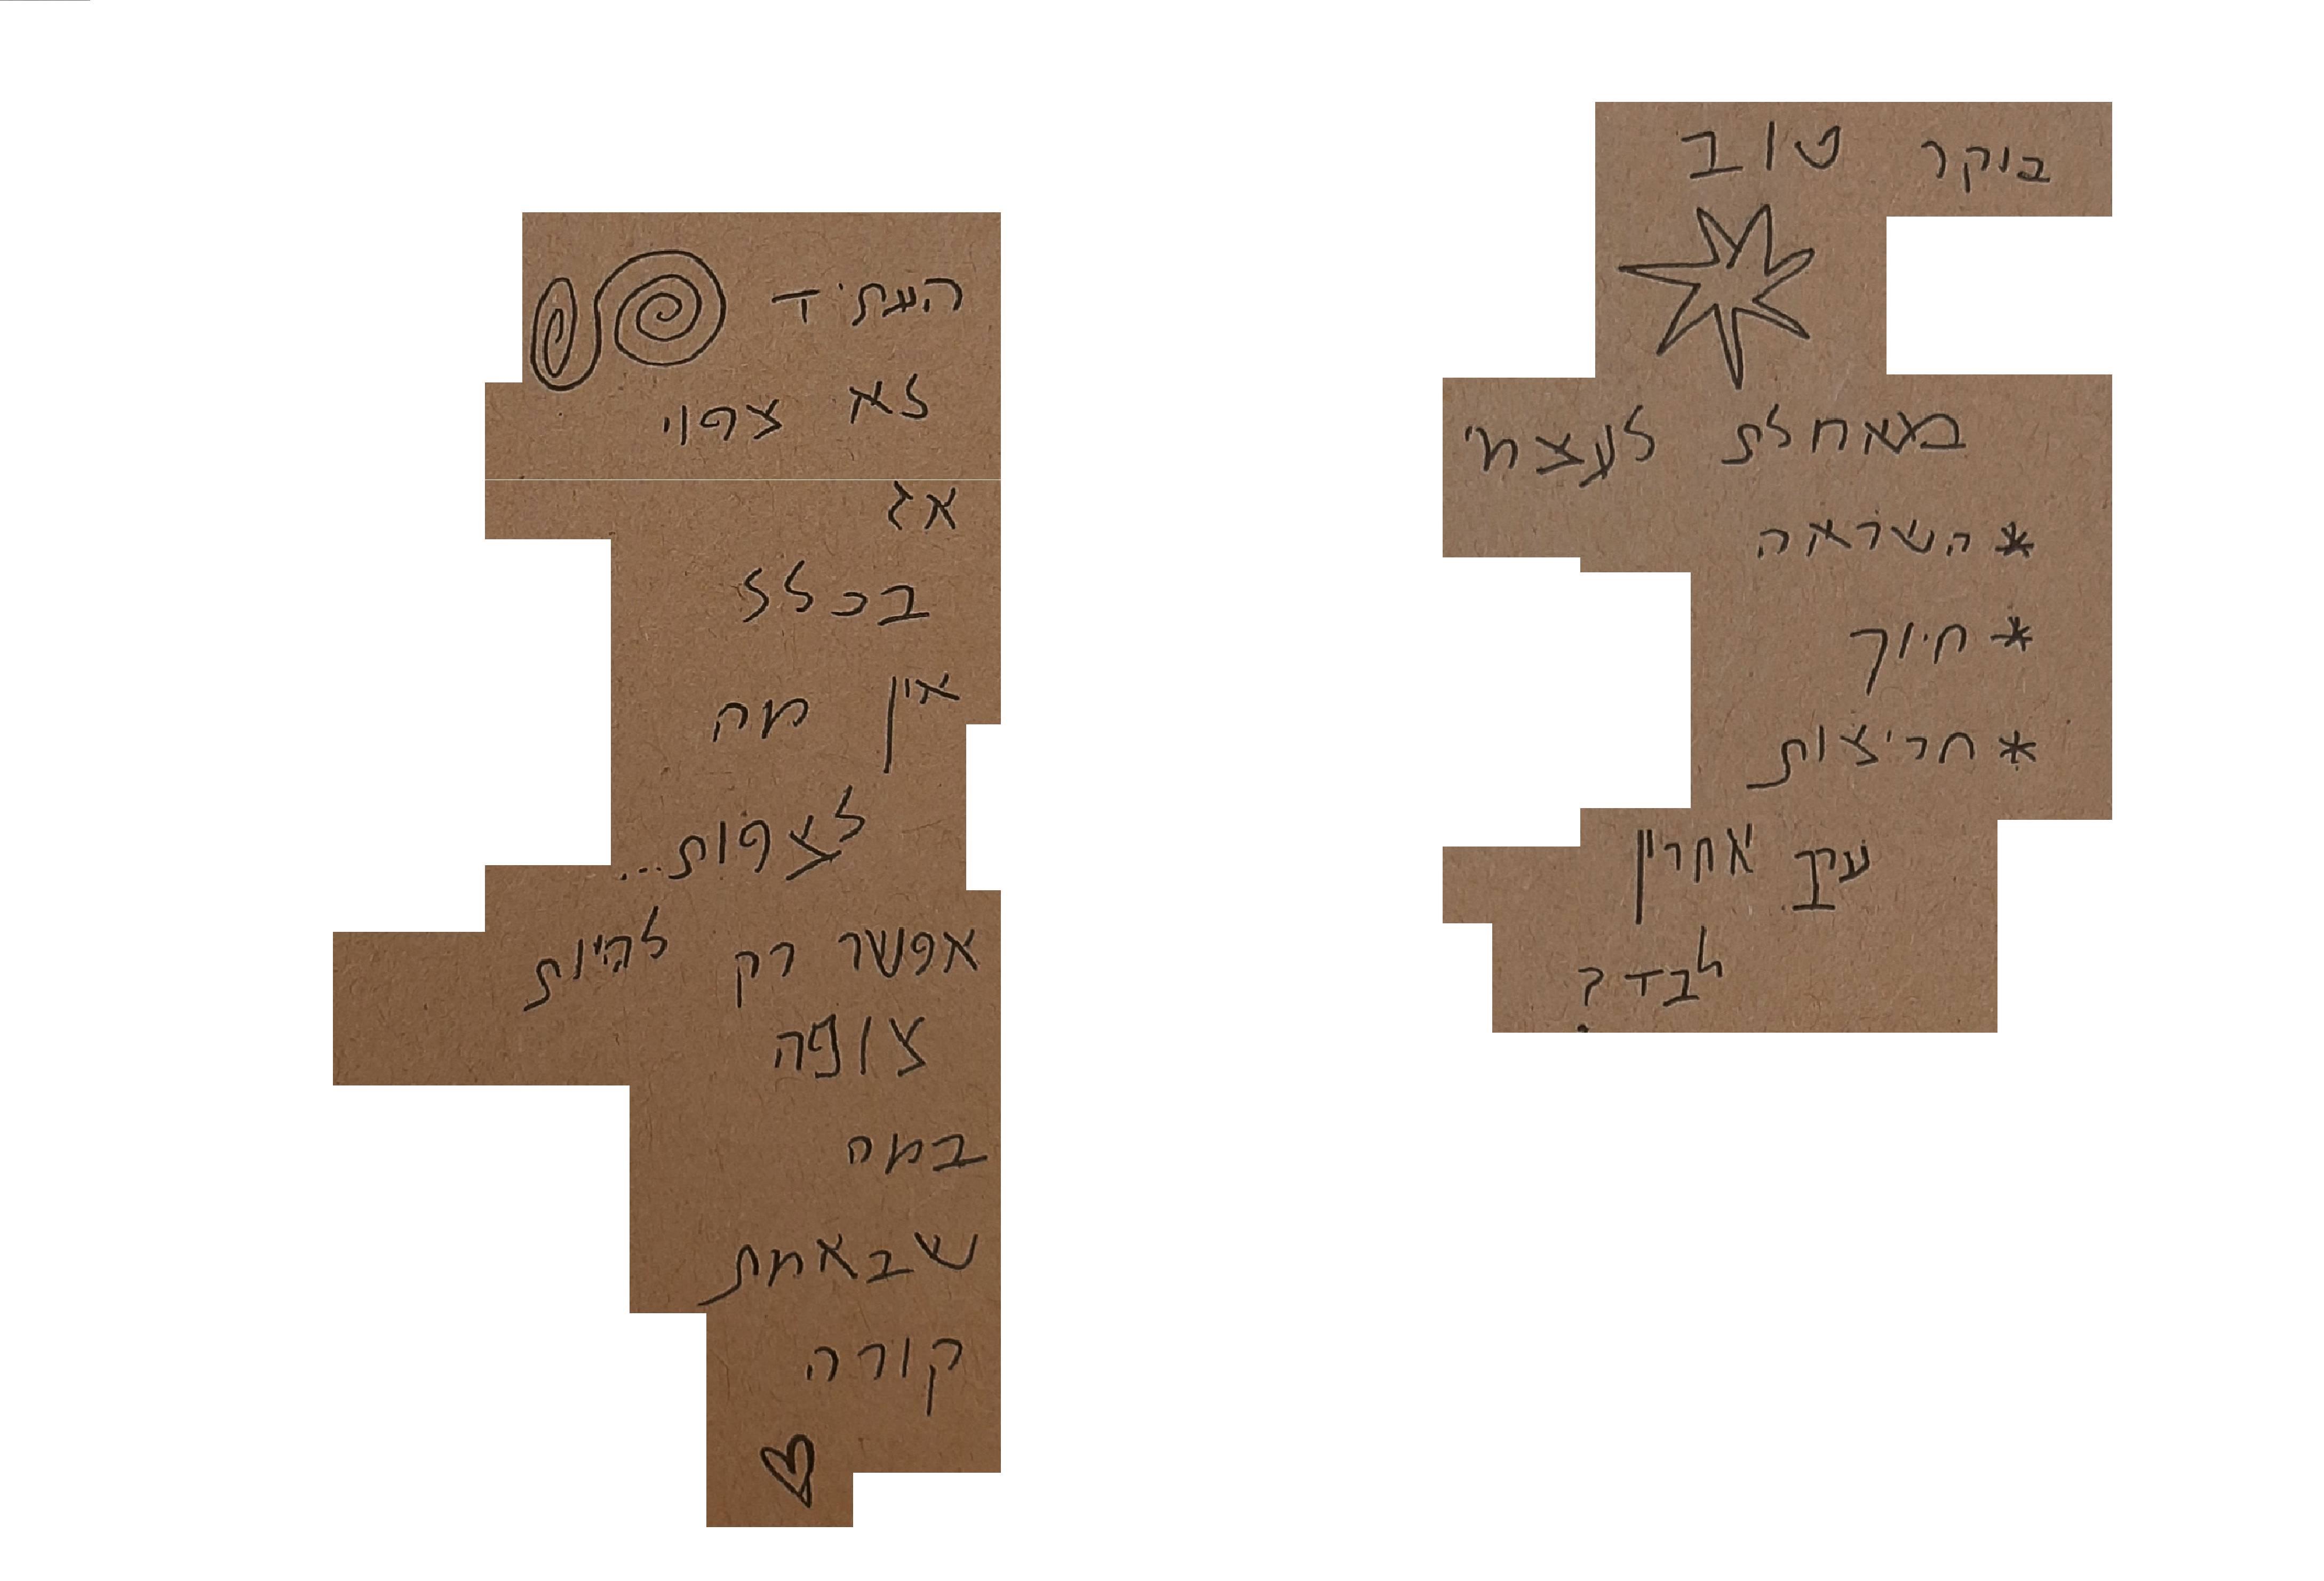 בוקר טוב
מאחלת לעצמי
* השראה
* חיוך
* חריצות
ערך אחרין
לבד?
העתיד
לא צפוי
אז
בכלל
אין מה
לצפות...
אפשר רק להיות
צופה
במה
שבאמת
קורה